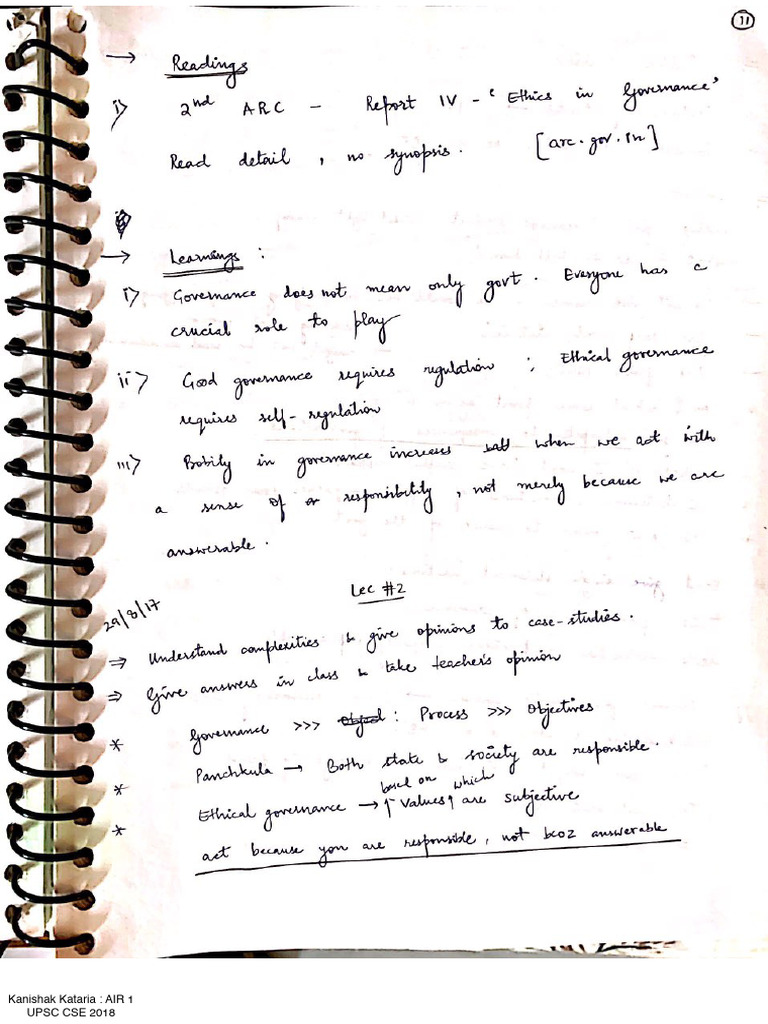 11
→ Readings
i> 2nd ARC - Report IV - 'Ethics in Governance'
Read detail, no synopsis. [arc.gov.in]
→ Learnings :
i> Governance does not mean only govt. Everyone has a
crucial role to play
ii> Good governance requires regulation ; Ethical governance
requires self-regulation
iii> in governance increases when we act with
a sense of responsibility, not merely because we are
answerable.
Lec #2
29/8/17
⇒ Understand complexities & give opinions to case-studies.
⇒ Give answers in class & take teacher's opinion
* Governance >>> Object : Process >>> Objectives
* Panchkula → Both state & society are responsible.
based on which
* Ethical governance → ↑ values ↑ are subjective
* act because you are responsible, not bcoz answerable
Kanishak Kataria : AIR 1
UPSC CSE 2018